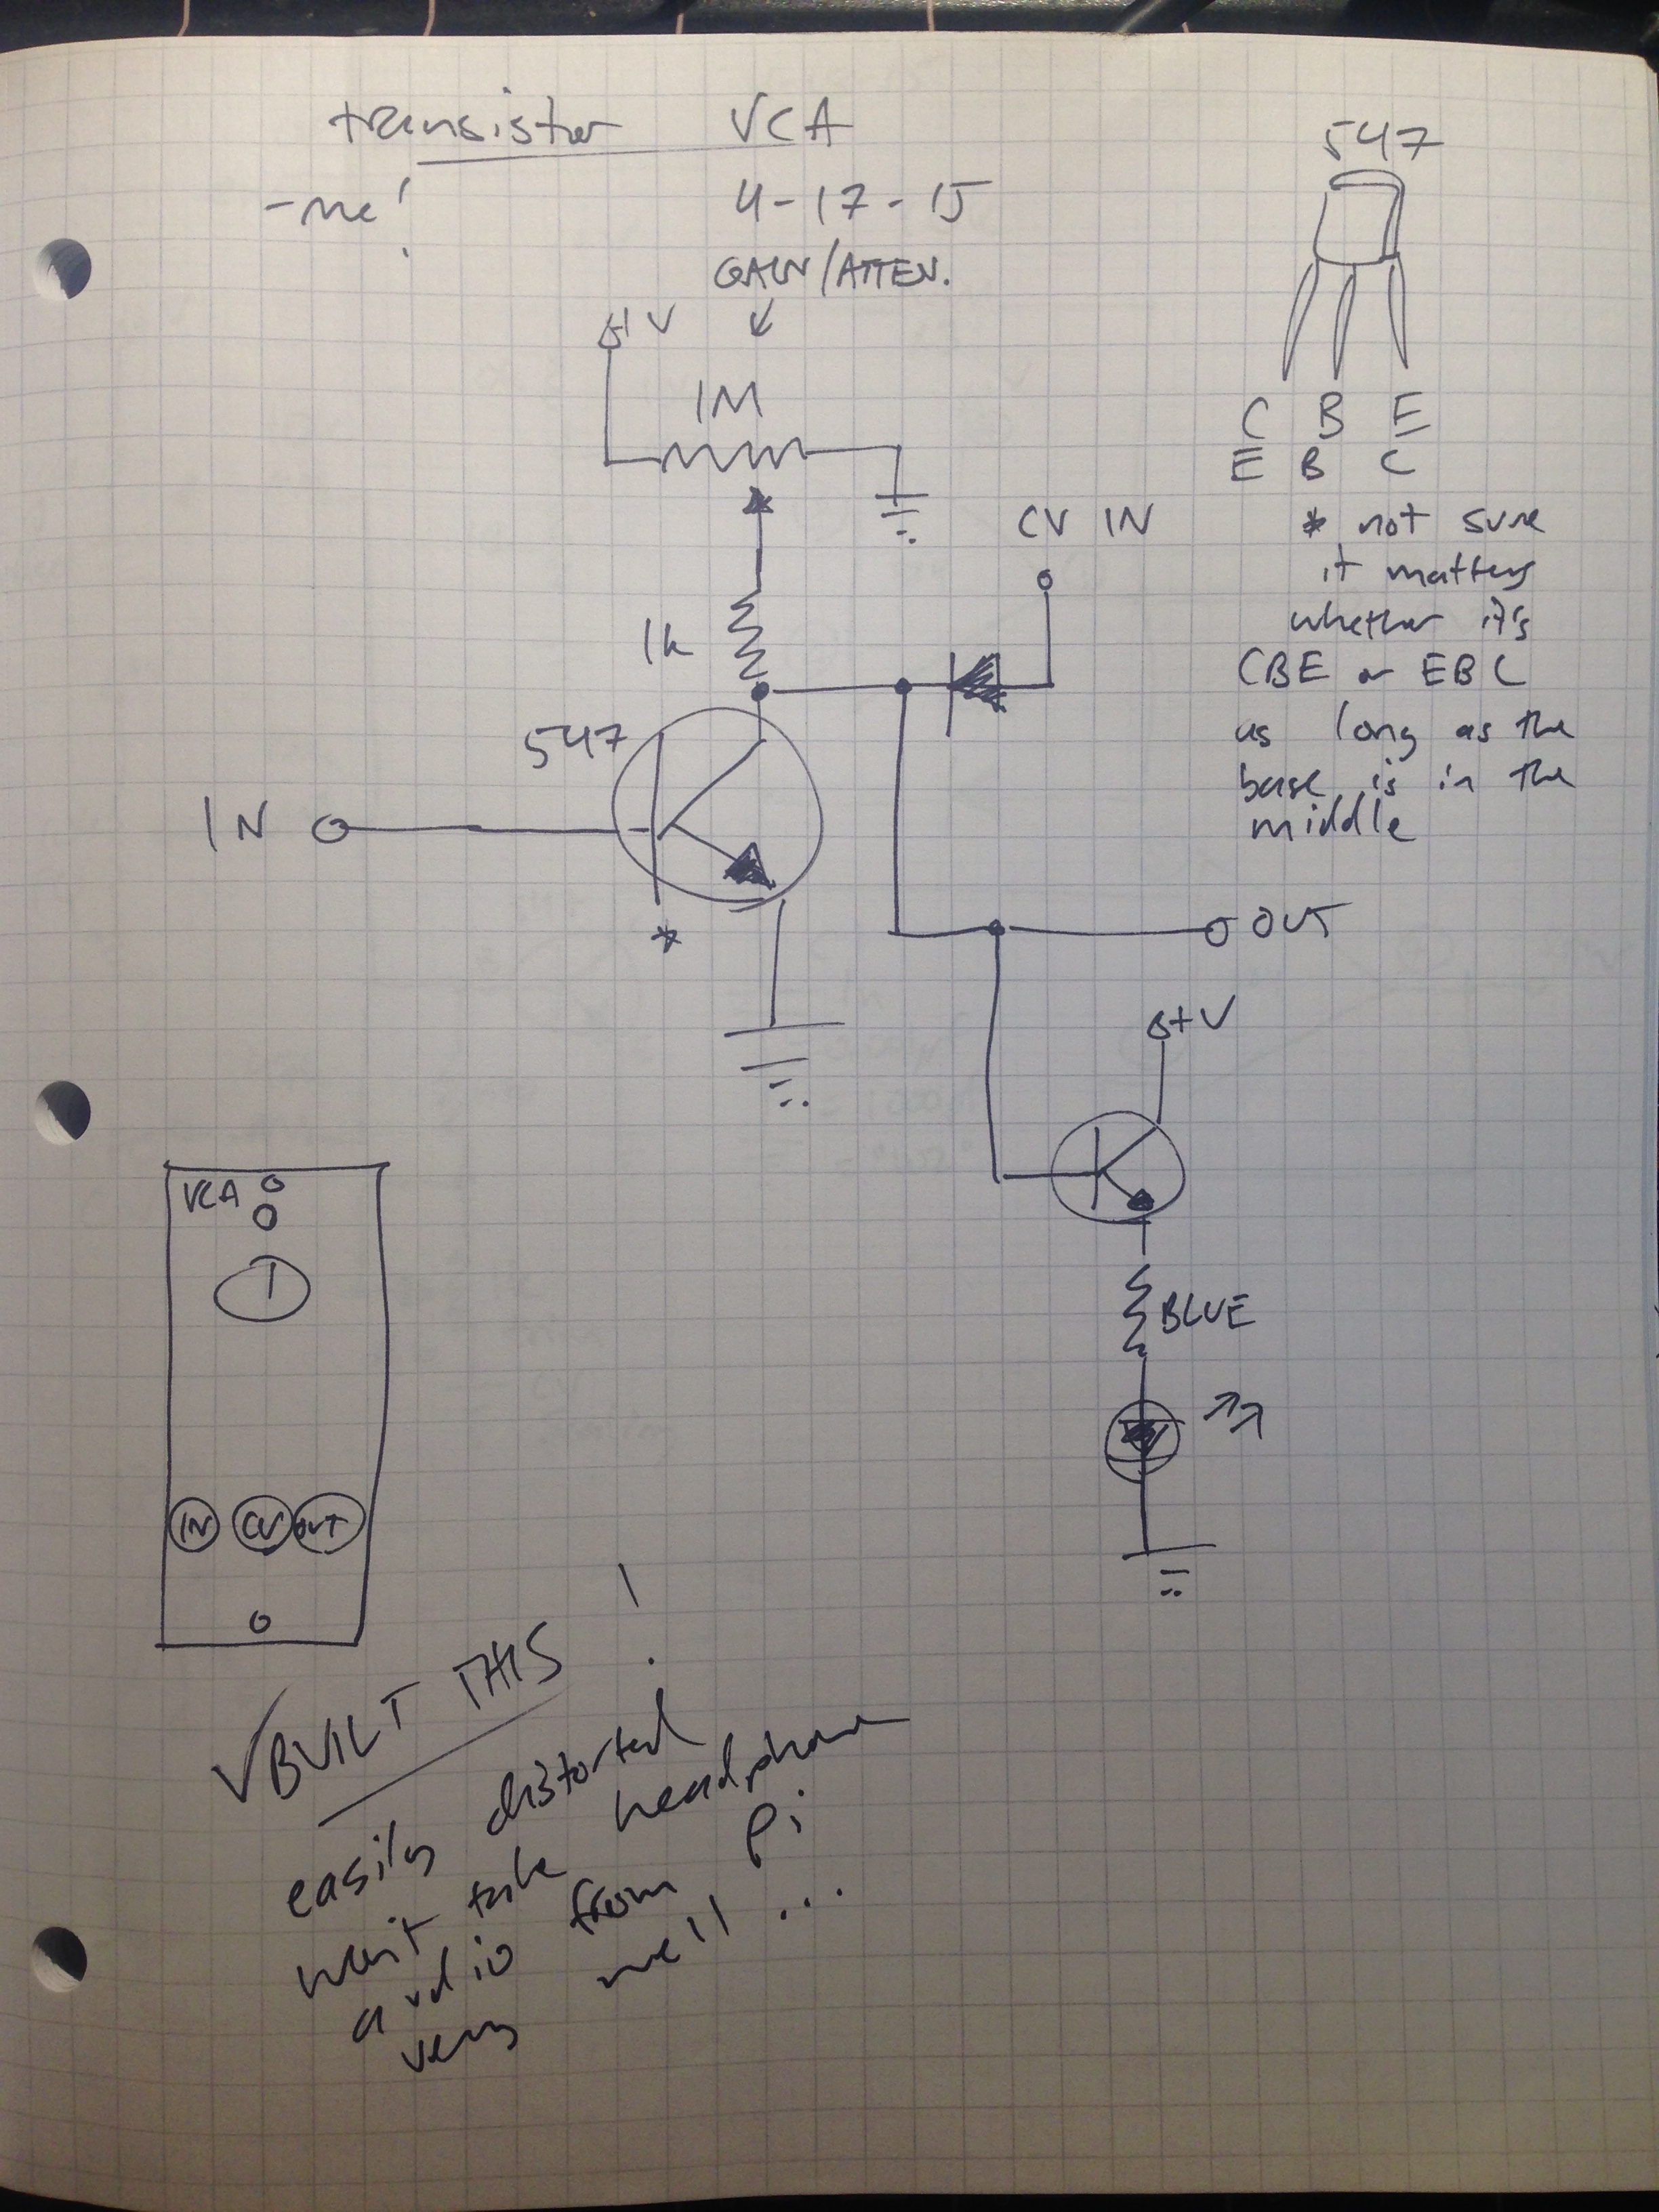 transistor VCA
-me!
4-17-15
GAIN/ATTEN.
+V
1M
547
C B E
E B C
* not sure
it matters
whether it's
CBE or EBC
as long as the
base is in the
middle
CV IN
1k
547
IN
*
OUT
+V
BLUE
VCA
IN CV OUT
√BUILT THIS!
easily distorted
won't take headphone
audio from Pi
very well...